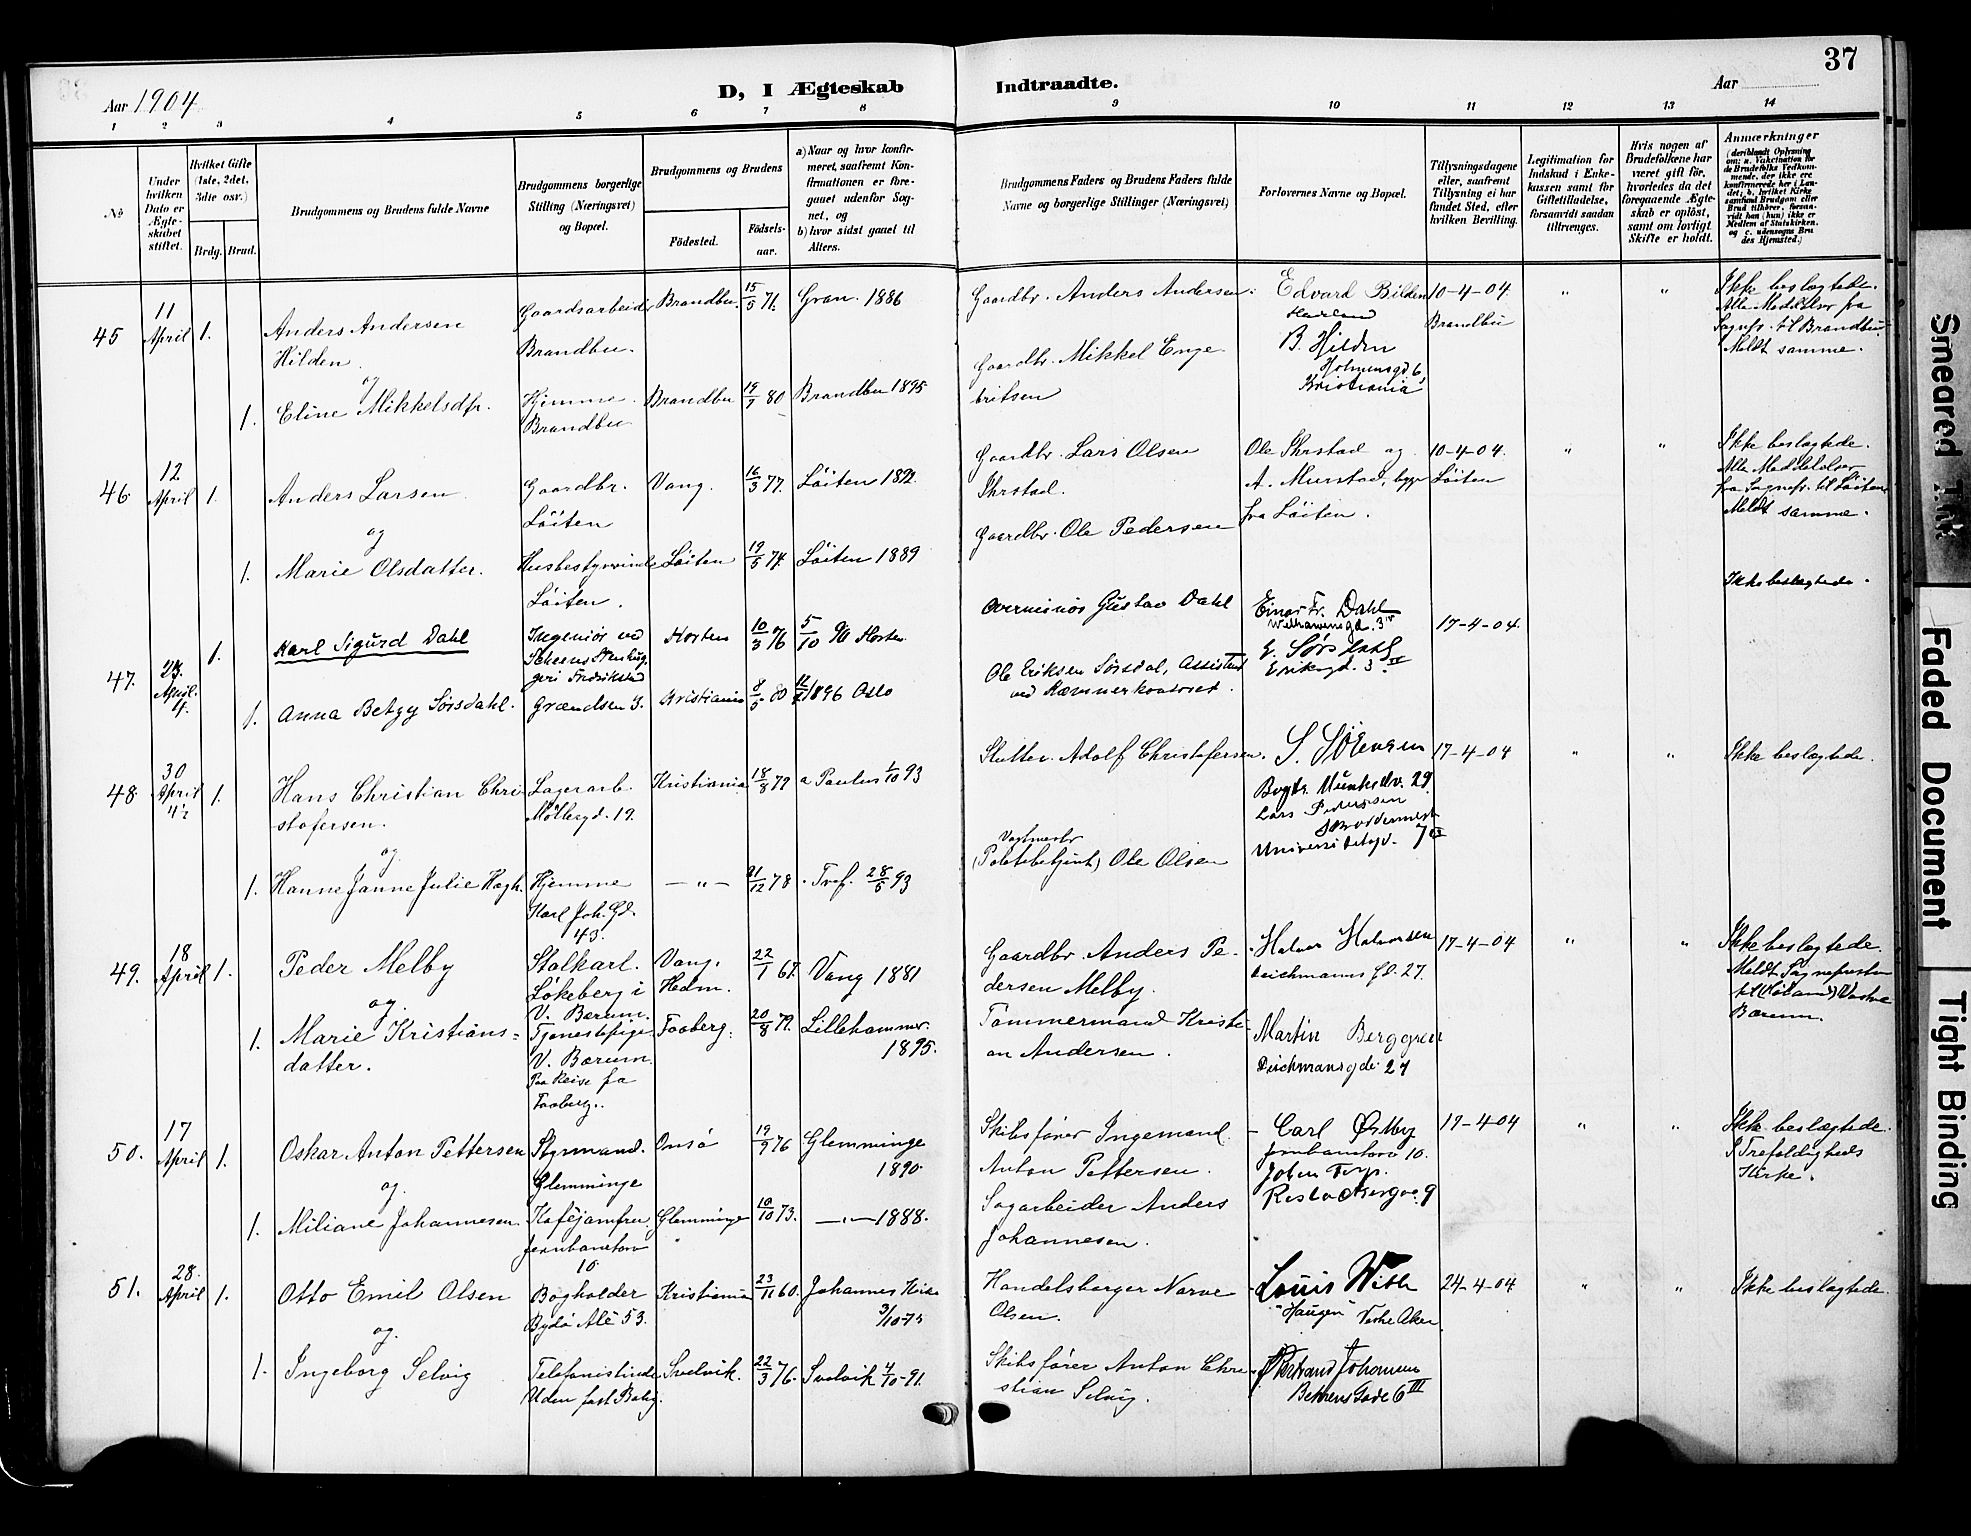 37
Aar 1904
D, I Ægteskab
Indtraadte.
Aar
1 2 3 4 5 6 7 8 9 10 11 12 13 14
№
Under hvilken Dato er Ægteskabet stiftet.
Hvilket Gifte (1ste, 2det, 3die osv.)
Brdg. Brud.
Brudgommens og Brudens fulde Navne
Brudgommens borgerlige Stilling (Næringsvei) og Bopæl.
Brudgommens og Brudens
Födested.
Födselsaar.
a) Naar og hvor konfirmeret, saafremt Konfirmationen er foregaaet udenfor Sognet, og
b) hvor sidst gaaet til Alters.
Brudgommens Faders og Brudens Faders fulde Navne og borgerlige Stillinger (Næringsvei)
Forlovernes Navne og Bopæl.
Tillysningsdagene eller, saafremt Tillysning ei har fundet Sted, efter hvilken Bevilling.
Legitimation for Indskud i Enkekassen samt for Giftetilladelse, forsaavidt saadan tiltrænges.
Hvis nogen af Brudefolkene har været gift før, hvorledes da det foregaaende Ægteskab er opløst, samt om lovligt Skifte er holdt.
Anmærkninger
(deriblandt Oplysning om: a. Vakcination for de Brudefolks Vedkommende, der ikke ere konfirmerede her i Landet; b. hvilket Kirkesamfund Brudgom eller Brud tilhörer, forsaavidt han (hun) ikke er Medlem af Statskirken, og c. udensogns Brudes Hjemsted.)
45
11 April
1.
Anders Andersen
Hilden
og
Gaardsarbeider
Brandbu.
Brandbu.
15/5 76.
Gran. 1886
Gaardbr. Anders Andersen.
Edvard Bilden
B. Hilden
Holmensgd. 6,
Kristiania
10-4-04.
Brandbu
"
"
Ikke beslægtede.
Alle Meddelelser fra
Sognepr. til Brandbu.
Meldt samme.
1.
Eline Mikkelsdtr.
Hjemme.
Brandbu
Brandbu
80
Brandbu 1895
Gaardbr. Mikkel Enge
britsen
46
12 April
1.
Anders Larsen
og
Gaardbr.
Löiten
Vang.
16/3 77.
Löiten 1892.
Gaardbr. Lars Olsen
Ole Thrstad og
A. Murstad, begge
fra Löiten.
10-4-04.
Löiten
"
"
Ikke beslægtede.
Alle Meddelelser
fra Sognepr. til Löiten
Meldt samme.
1.
Marie Olsdatter.
Husbestyrerinde
Löiten.
Löiten
19/5 74.
Löiten 1889
Gaardbr. Ole Pedersen
47.
23 April.
1.
Karl Sigurd Dahl
Ingeniør ved
Fredrikstad
Horten
10/3 76
5/10 90 Horten
Overminör Gustav Dahl
Einar Fr. Dahl
E. Sørsdahl
Eriksgd. 3 II
17-4-04.
Ikke beslægtede.
1.
Anna Betzy Sörsdahl.
Grændsen 3.
Kristiania
8/5 80
1896 Oslo
Ole Eriksen Sörsdal, Assistent
ved Kæmnerkontoret.
48
30 April
1.
Hans Christian Chri
stofersen.
og
Lagerarb.
Möllergd. 19.
Kristiania
18/8 79
a Paulus 1/10 93
Adolf Christofersen.
S. Sörensen
Bogtr. Munkedv. 29.
Lars Pedersen
Universitetsgd. 7 III
17-4-04
"
"
Ikke beslægtede.
1.
Hanne Janne Julie Hagh.
Hjemme
Karl Joh. Gd.
43.
— " —
21/12 78
Tref. 28/5 93
Vagtmester
(Politibetjent) Ole Olsen
49.
18 April
1.
Peder Melby
og
Stalkarl.
Lökeberg i
V. Bærum.
Vang,
Hedm.
22/1 67.
Vang 1881
Gaardbr. Anders Pe-
dersen Melby.
Halvor Halvorsen
Deichmanns Gd. 27.
17-4-04
"
"
Ikke beslægtede.
Meldt Sognepresten
Vestre
Bærum.
1.
Marie Kristians-
datter.
Tjenestepige
V. Bærum.
Paa Reise fra
Faaberg.
Faaberg.
20/8 79.
Lillehammer.
1895.
Tømmermand Kristi-
an Andersen.
Martin Berggren
Deichmansgde 27
50.
17 April
1.
Oskar Anton Pettersen
og
Styrmand.
Glemminge
Onsö
19/9 76
Glemminge
1890.
Skibsfører Ingemand
Anton Pettersen.
Carl Østby
Jernbanetorv 10.
Johan Torp.
9
17-4-04
"
"
Ikke beslægtede.
I Trefoldigheds
Kirke.
1.
Miliane Johannesen.
Kaféjomfru.
Jernbanetorv
10.
Glemminge
10/10 73.
— " — 1888.
Sagarbeider Anders
Johannesen.
51.
28. April
1.
Otto Emil Olsen
og.
Bogholder
Bygdö Alé 53.
Kristiania
23/11 60.
Johannes Kirke
3/10-75
Handelsborger Narve
Olsen.
Louis With
"Haugen" Vestre Aker.
24-4-04
"
"
Ikke beslægtede.
1.
Ingeborg Selvig
Telefonistinde
Uden fast Bolig.
Svelvik.
22/3 76.
Svelvik 4/10-91.
Skibsfører Anton Chri-
stian Selvig.
Johansen
Behrens Gade 6 III
Smeared Ink
Faded Document
Tight Binding